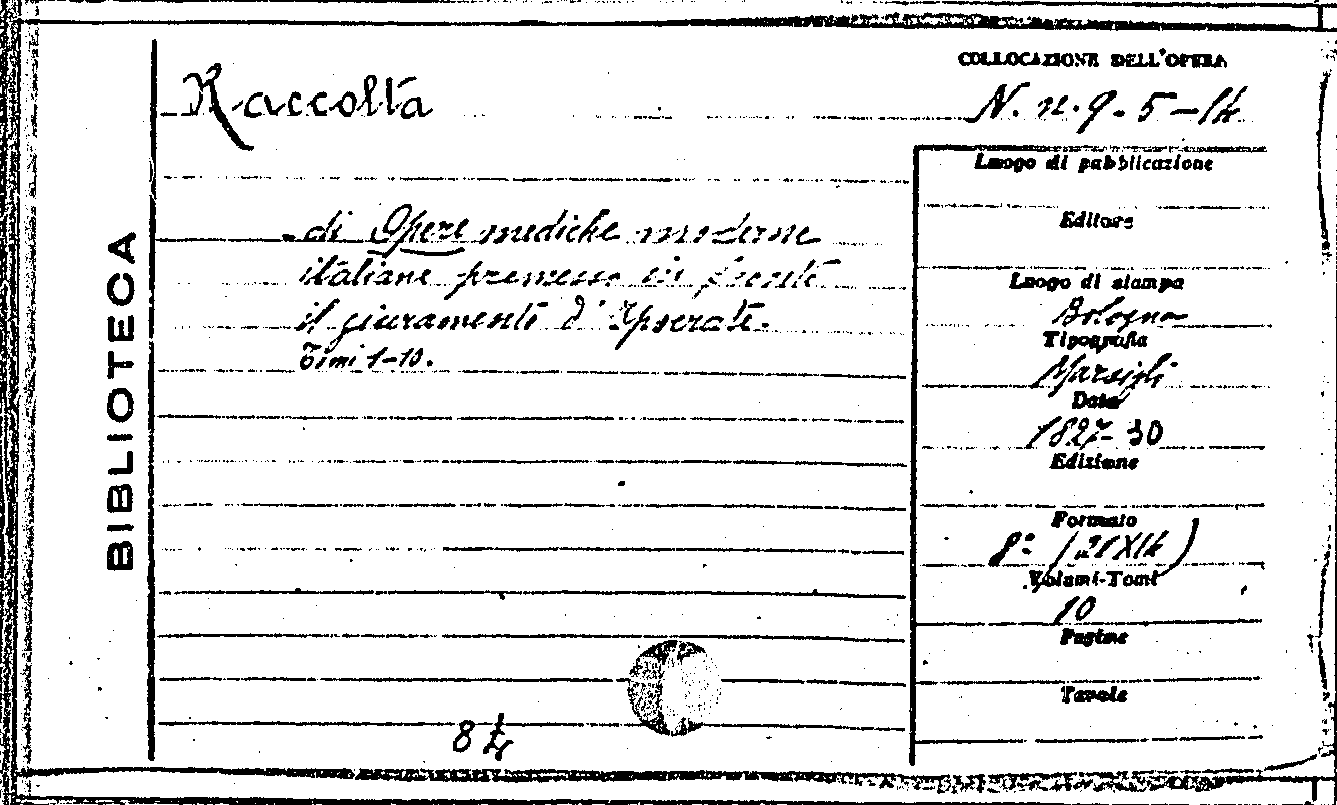 BIBLIOTECA
Raccolta
di Opere mediche moderne
italiane premesso in fronte
il giuramento d'Ipocrate.
Tomi 1-10.
84
COLLOCAZIONE DELL'OPERA
N. n. 9. 5-14
Luogo di pubblicazione
Editore
Luogo di stampa
Bologna
Tipografia
Marsigli
Data
1827-30
Edizione
Formato
8° (21X14)
Volumi-Tomi
10
Pagine
Tavole